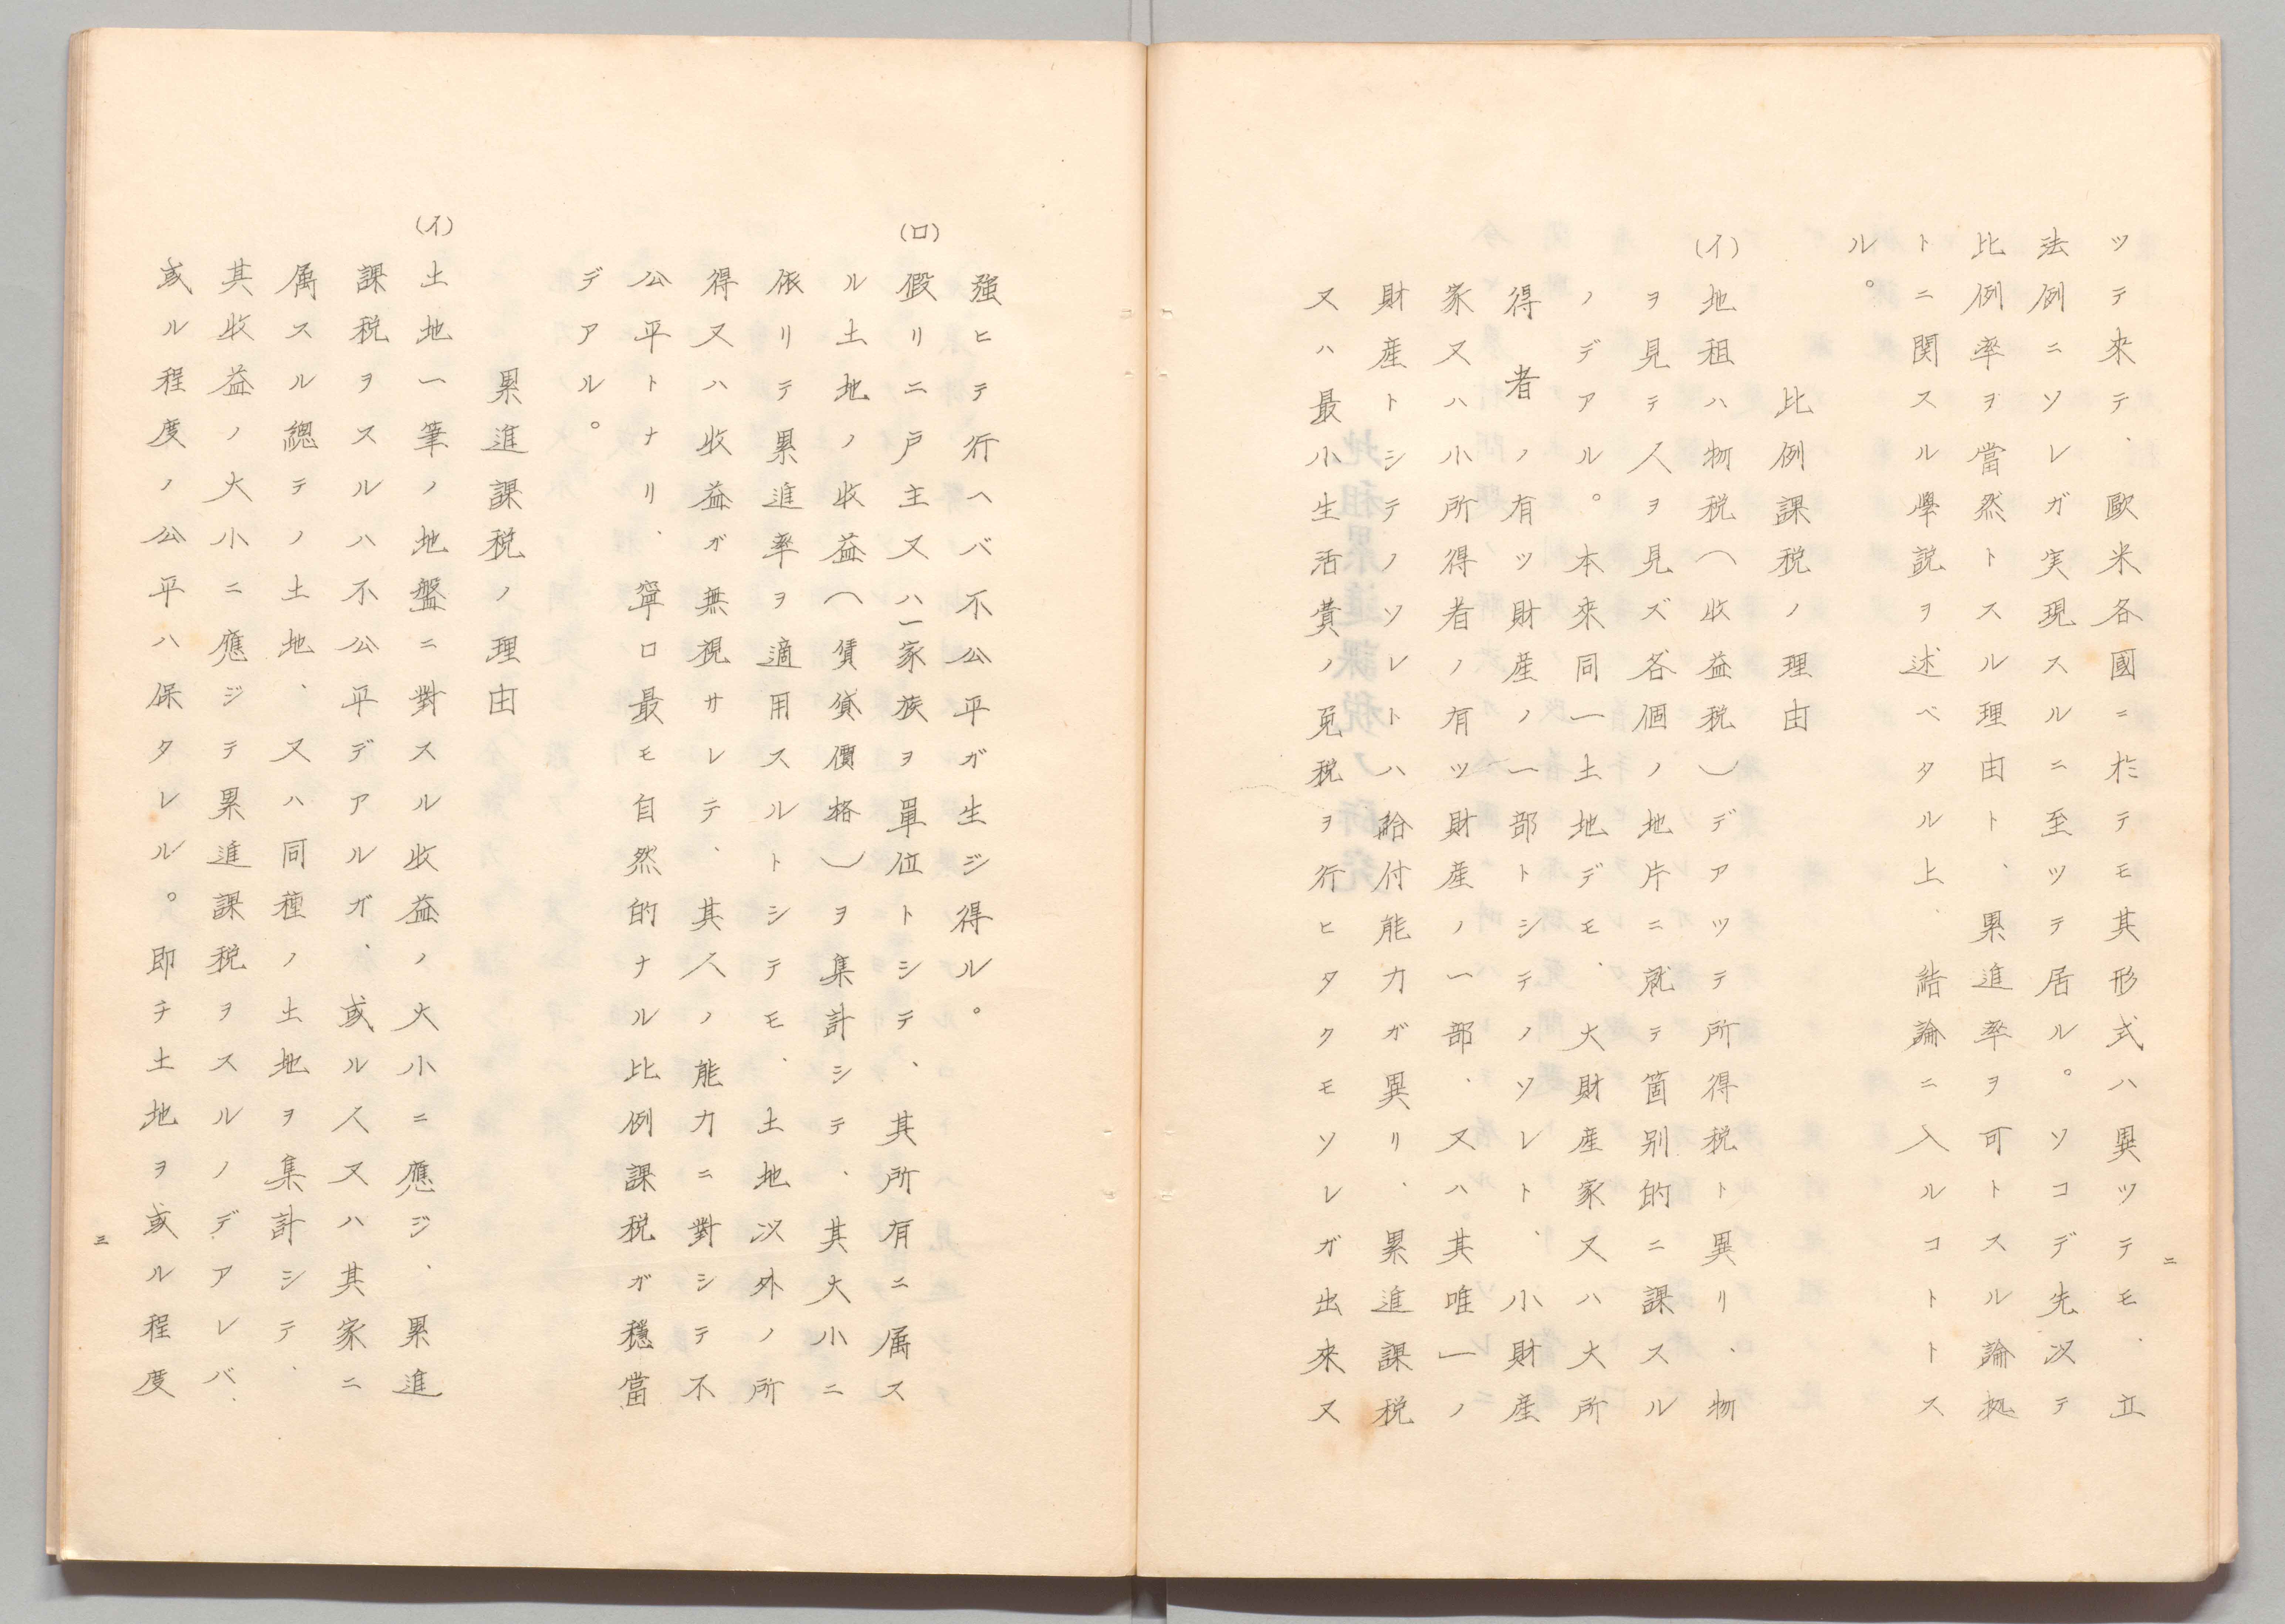 ツテ來テ、歐米各國ニ於テモ其形式ハ異ツテモ、立
法例ニソレガ実現スルニ至ツテ居ル。ソコデ先次テ
比例率ヲ當然トスル理由ト、累進率ヲ可トスル論拠
トニ関スル學説ヲ述ベタル上、結論ニ入ルコトトス
ル。
比例課税ノ理由
(イ)地租ハ物税(收益税)デアツテ所得税ト異リ、物
ヲ見テ人ヲ見ズ各個ノ地片ニ就テ箇別的ニ課スル
ノデアル。本來同一土地デモ、大財産家又ハ大所
得者ノ有ツ財産ノ一部トシテノソレト、小財産
家又ハ小所得者ノ有ツ財産ノ一部、又ハ其唯一ノ
財産トシテノソレトハ給付能力ガ異リ、累進課税
又ハ最小生活費ノ免税ヲ行ヒタクモソレガ出來ヌ
二
強ヒテ行ヘバ不公平ガ生ジ得ル。
(ロ)假リニ戸主又ハ一家族ヲ單位トシテ、其所有ニ属ス
ル土地ノ收益(賃貸價格)ヲ集計シテ、其大小ニ
依リテ累進率ヲ適用スルトシテモ、土地以外ノ所
得又ハ收益ガ無視サレテ、其人ノ能力ニ對シテ不
公平トナリ、寧ロ最モ自然的ナル比例課税ガ穏當
デアル。
累進課税ノ理由
(イ)土地一筆ノ地盤ニ對スル收益ノ大小ニ應ジ、累進
課税ヲスルハ不公平デアルガ、或ル人又ハ其家ニ
属スル總テノ土地、又ハ同種ノ土地ヲ集計シテ、
其收益ノ大小ニ應ジテ累進課税ヲスルノデアレバ、
或ル程度ノ公平ハ保タレル。即チ土地ヲ或ル程度
三